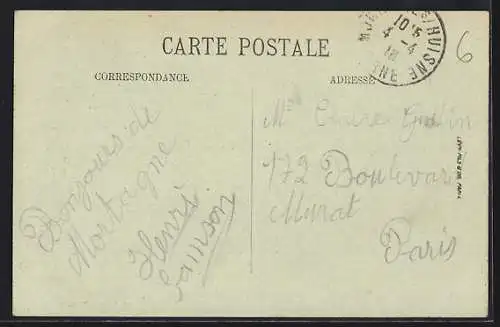 CARTE POSTALE
CORRESPONDANCE
ADRESSE
/HUISNE
10 15
4 - 4
18
6
Bonjours de
Mortagne
Henri
Samson
Me Claire
172 Boulevar
Murat
Paris